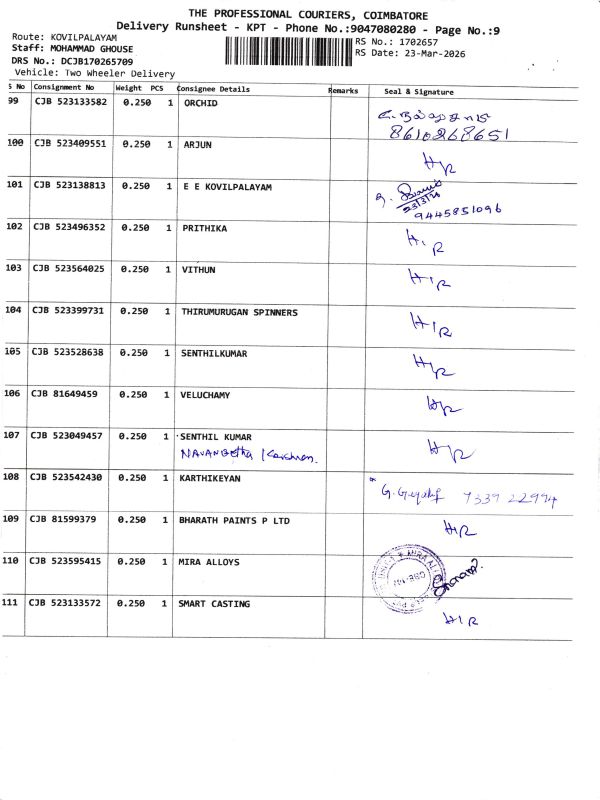 THE PROFESSIONAL COURIERS, COIMBATORE
Delivery Runsheet - KPT - Phone No.:9047080280 - Page No.:9
Route: KOVILPALAYAM
RS No.: 1702657
Staff: MOHAMMAD GHOUSE
RS Date: 23-Mar-2026
DRS No.: DCJB170265709
Vehicle: Two Wheeler Delivery
S No Consignment No Weight PCS Consignee Details Remarks Seal & Signature
99 CJB 523133582 0.250 1 ORCHID
8610268651
100 CJB 523409551 0.250 1 ARJUN H/R
101 CJB 523138813 0.250 1 E E KOVILPALAYAM
23/3/26
9445851096
102 CJB 523496352 0.250 1 PRITHIKA H/R
103 CJB 523564025 0.250 1 VITHUN H/R
104 CJB 523399731 0.250 1 THIRUMURUGAN SPINNERS H/R
105 CJB 523528638 0.250 1 SENTHILKUMAR H/R
106 CJB 81649459 0.250 1 VELUCHAMY H/R
107 CJB 523049457 0.250 1 SENTHIL KUMAR H/R
108 CJB 523542430 0.250 1 KARTHIKEYAN
7339 22994
109 CJB 81599379 0.250 1 BHARATH PAINTS P LTD H/R
110 CJB 523595415 0.250 1 MIRA ALLOYS
111 CJB 523133572 0.250 1 SMART CASTING H/R